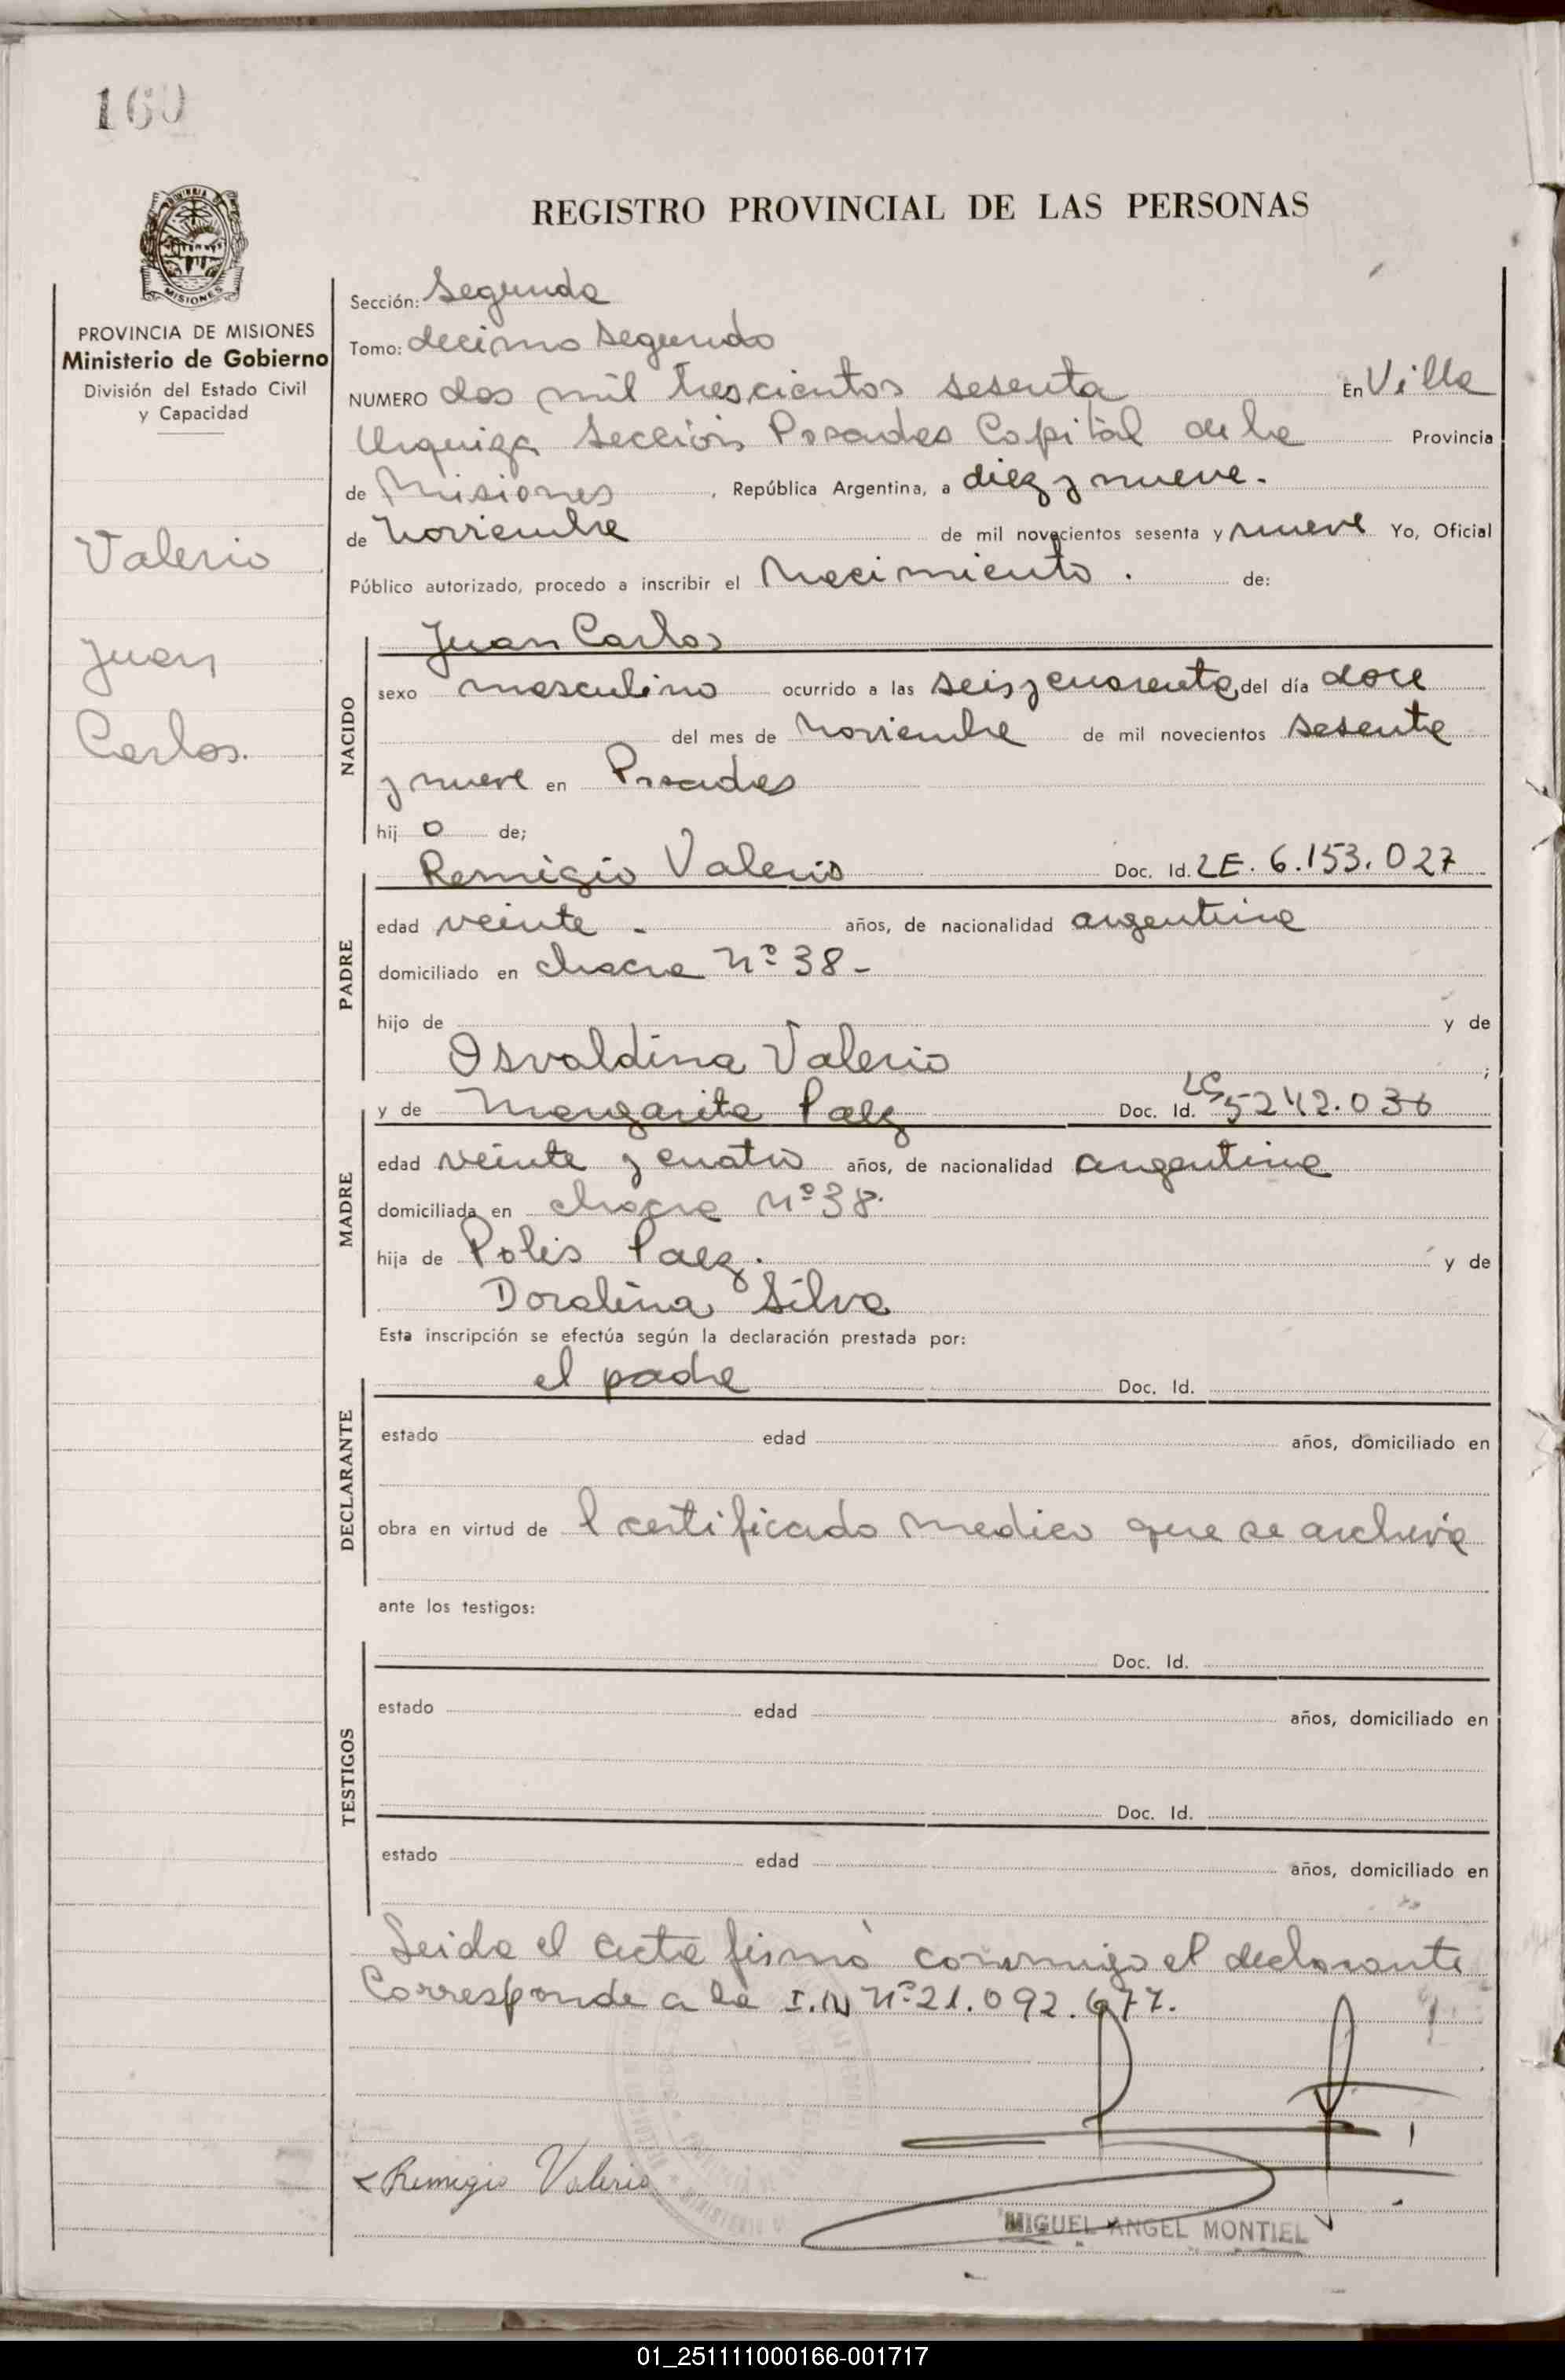 160
REGISTRO PROVINCIAL DE LAS PERSONAS
MISIONES
PROVINCIA DE MISIONES
Ministerio de Gobierno
División del Estado Civil
y Capacidad
Valerio
Juan
Carlos.
Sección: Segunda
Tomo: decimo segundo
NUMERO dos mil trescientos sesenta En Villa
Urquiza Sección Posadas Capital de la Provincia
de Misiones, República Argentina, a diez y nueve.
de noviembre de mil novecientos sesenta y nueve Yo, Oficial
Público autorizado, procedo a inscribir el nacimiento. de:
NACIDO
Juan Carlos
sexo masculino ocurrido a las seis y cuarenta del día doce
del mes de noviembre de mil novecientos sesenta
y nueve en Posadas
hij o de;
PADRE
Remigio Valerio Doc. Id. LE. 6.153.027
edad veinte - años, de nacionalidad argentina
domiciliado en chacra Nº 38-
hijo de y de
Osvaldina Valerio ;
MADRE
y de Margarita Paez Doc. Id. LC 5242.036
edad veinte y cuatro años, de nacionalidad argentina
domiciliada en chacra Nº 38.
hija de Polis Paez. y de
Doralina Silva
Esta inscripción se efectúa según la declaración prestada por:
DECLARANTE
el padre Doc. Id.
estado edad años, domiciliado en
obra en virtud de l certificado medico que se archiva
ante los testigos:
TESTIGOS
Doc. Id.
estado edad años, domiciliado en
Doc. Id.
estado edad años, domiciliado en
Leida el acta firmó conmigo el declarante
Corresponde a la I.N Nº 21.092.677.
Remigio Valerio
MIGUEL ANGEL MONTIEL
01_251111000166-001717